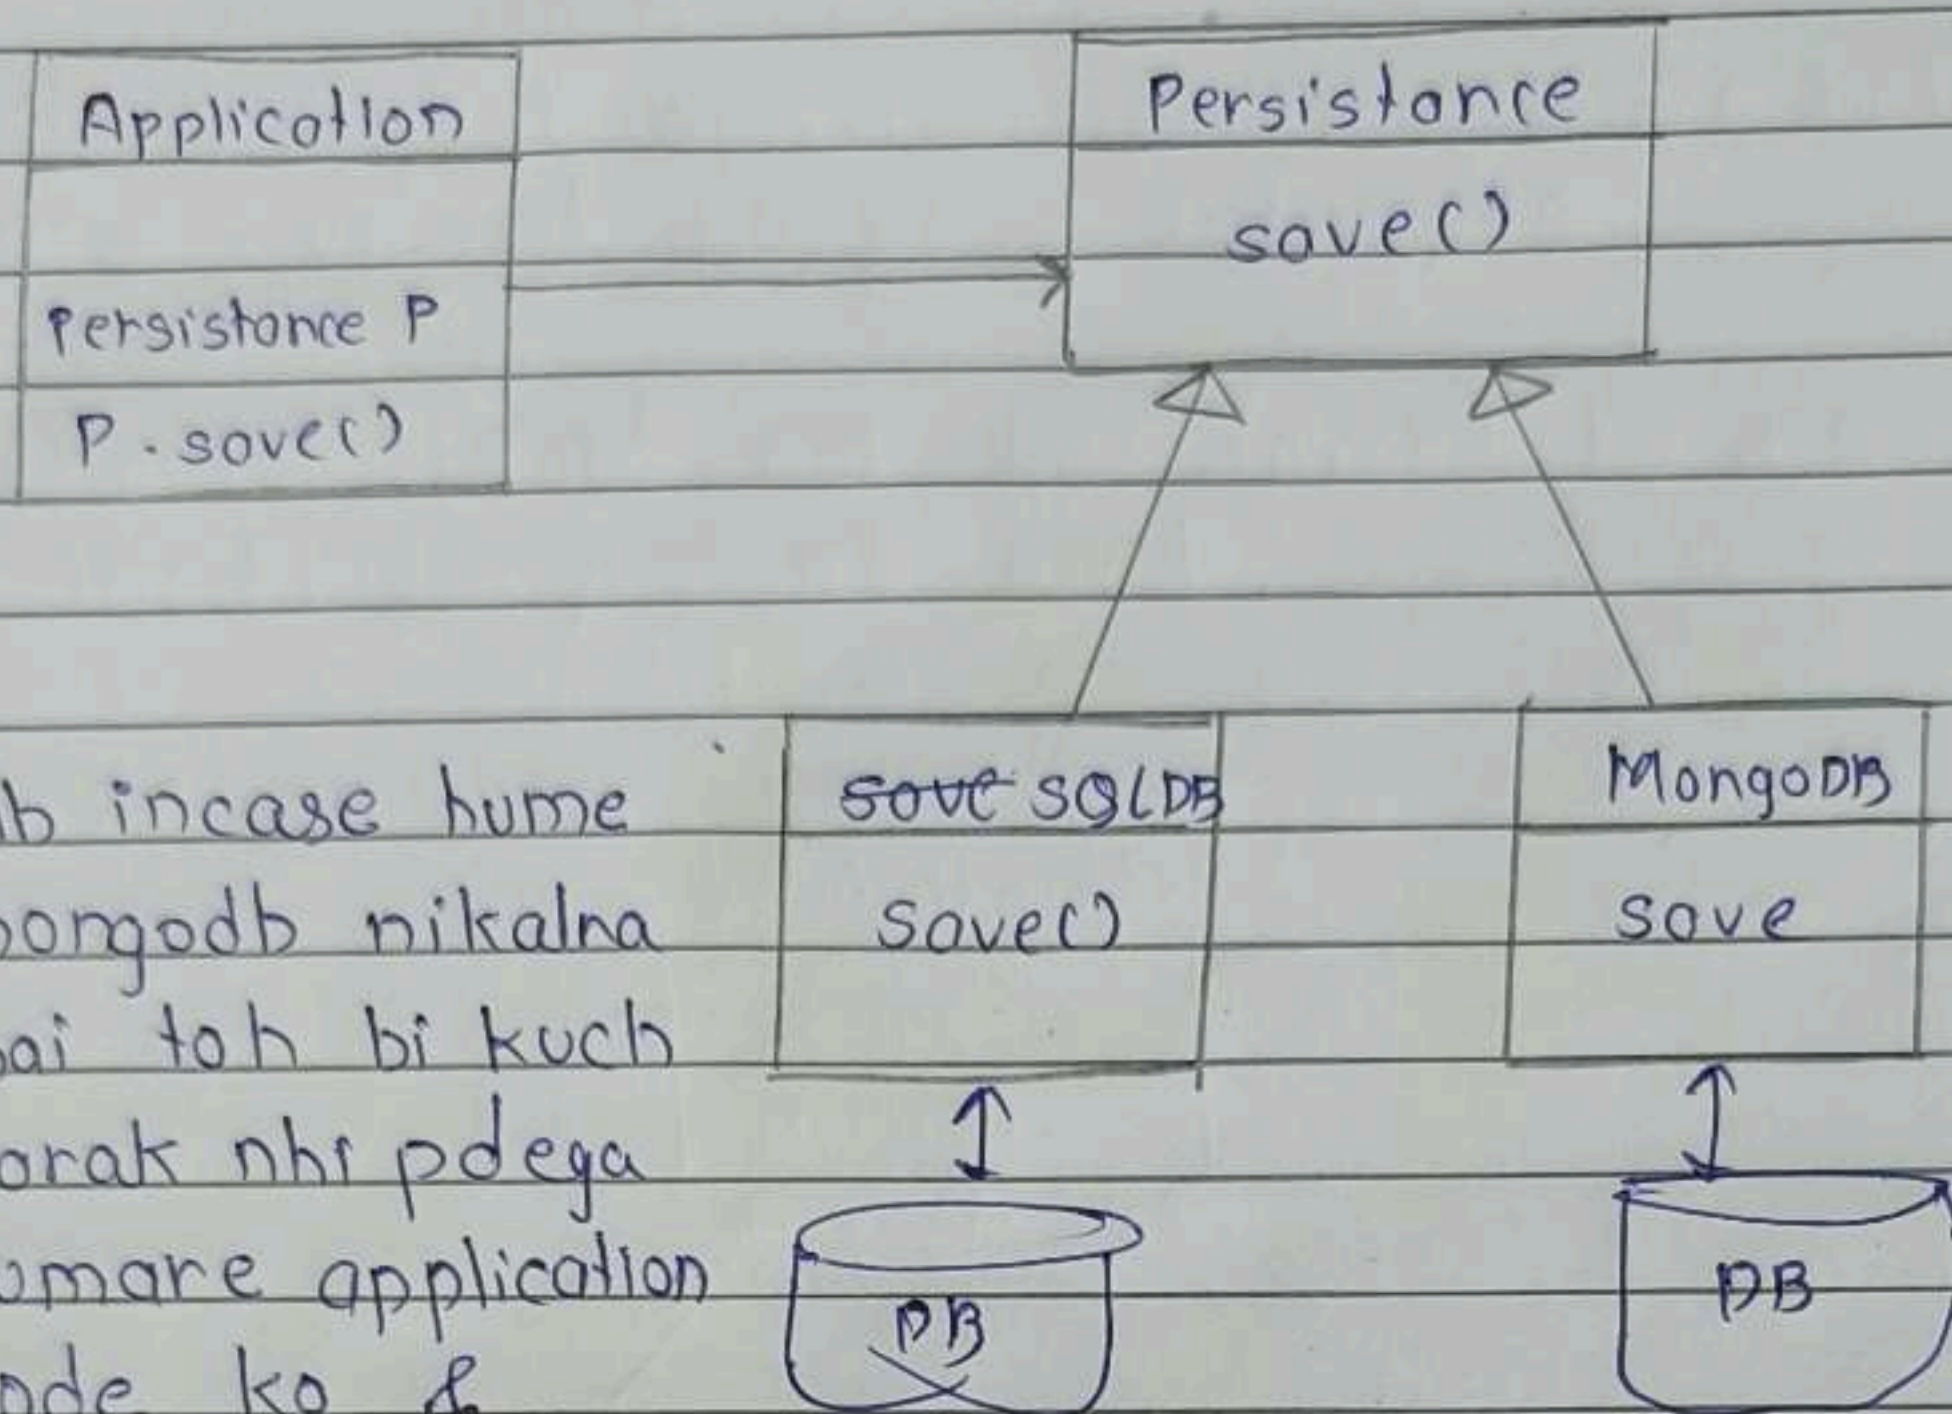 Application
Persistance
save()
Persistance P
P.save()
b incase hume
ongodb nikalna
ai toh bi kuch
arak nhi pdega
mare application
ode ko &
save SQLDB
MongoDB
save()
save
DB
DB